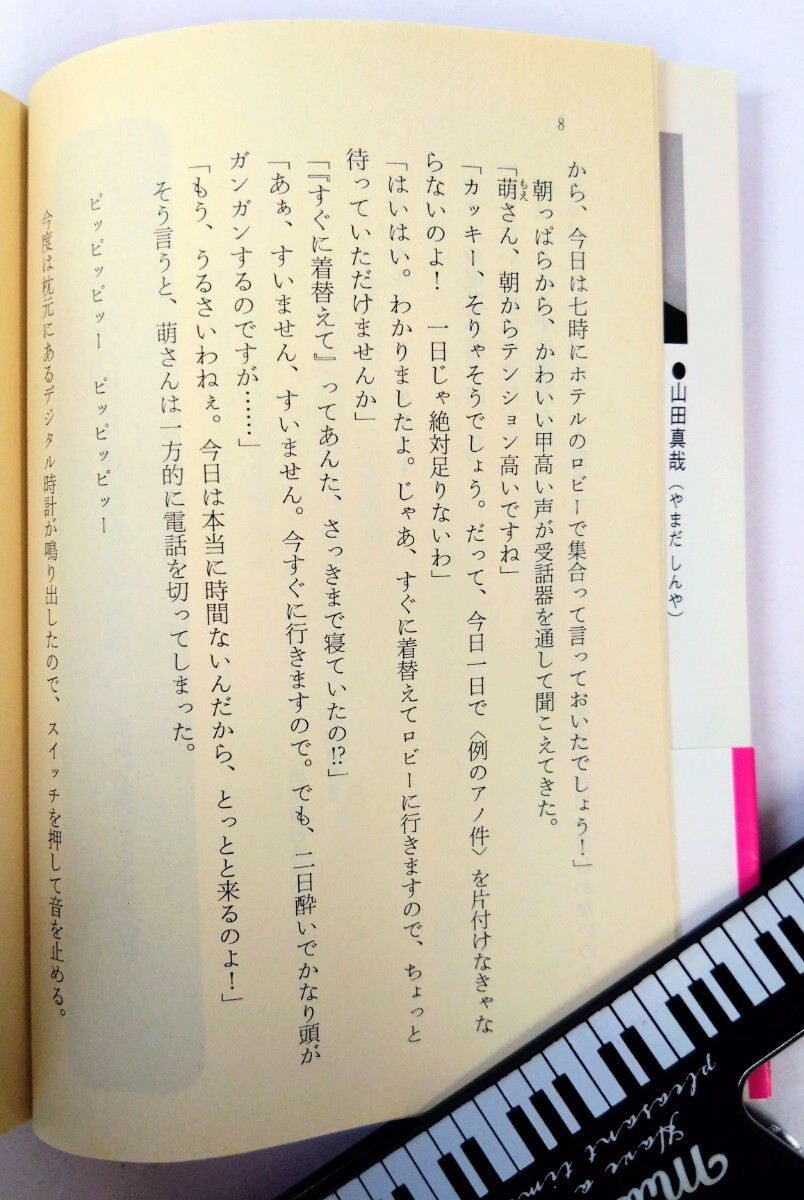 8
から、今日は七時にホテルのロビーで集合って言っておいたでしょう！」
朝っぱらから、かわいい甲高い声が受話器を通して聞こえてきた。
「萌さん、朝からテンション高いですね」
もえ
「カッキー、そりゃそうでしょう。だって、今日一日で〈例のアノ件〉を片付けなきゃな
らないのよ！　一日じゃ絶対足りないわ」
「はいはい。わかりましたよ。じゃあ、すぐに着替えてロビーに行きますので、ちょっと
待っていただけませんか」
「『すぐに着替えて』ってあんた、さっきまで寝ていたの!?」
「あぁ、すいません、すいません。今すぐに行きますので。でも、二日酔いでかなり頭が
ガンガンするのですが……」
「もう、うるさいわねぇ。今日は本当に時間ないんだから、とっとと来るのよ！」
そう言うと、萌さんは一方的に電話を切ってしまった。
ピッピッピッー　ピッピッピッー
今度は枕元にあるデジタル時計が鳴り出したので、スイッチを押して音を止める。
●山田真哉（やまだ しんや）
Have a
pleasant time
Mu